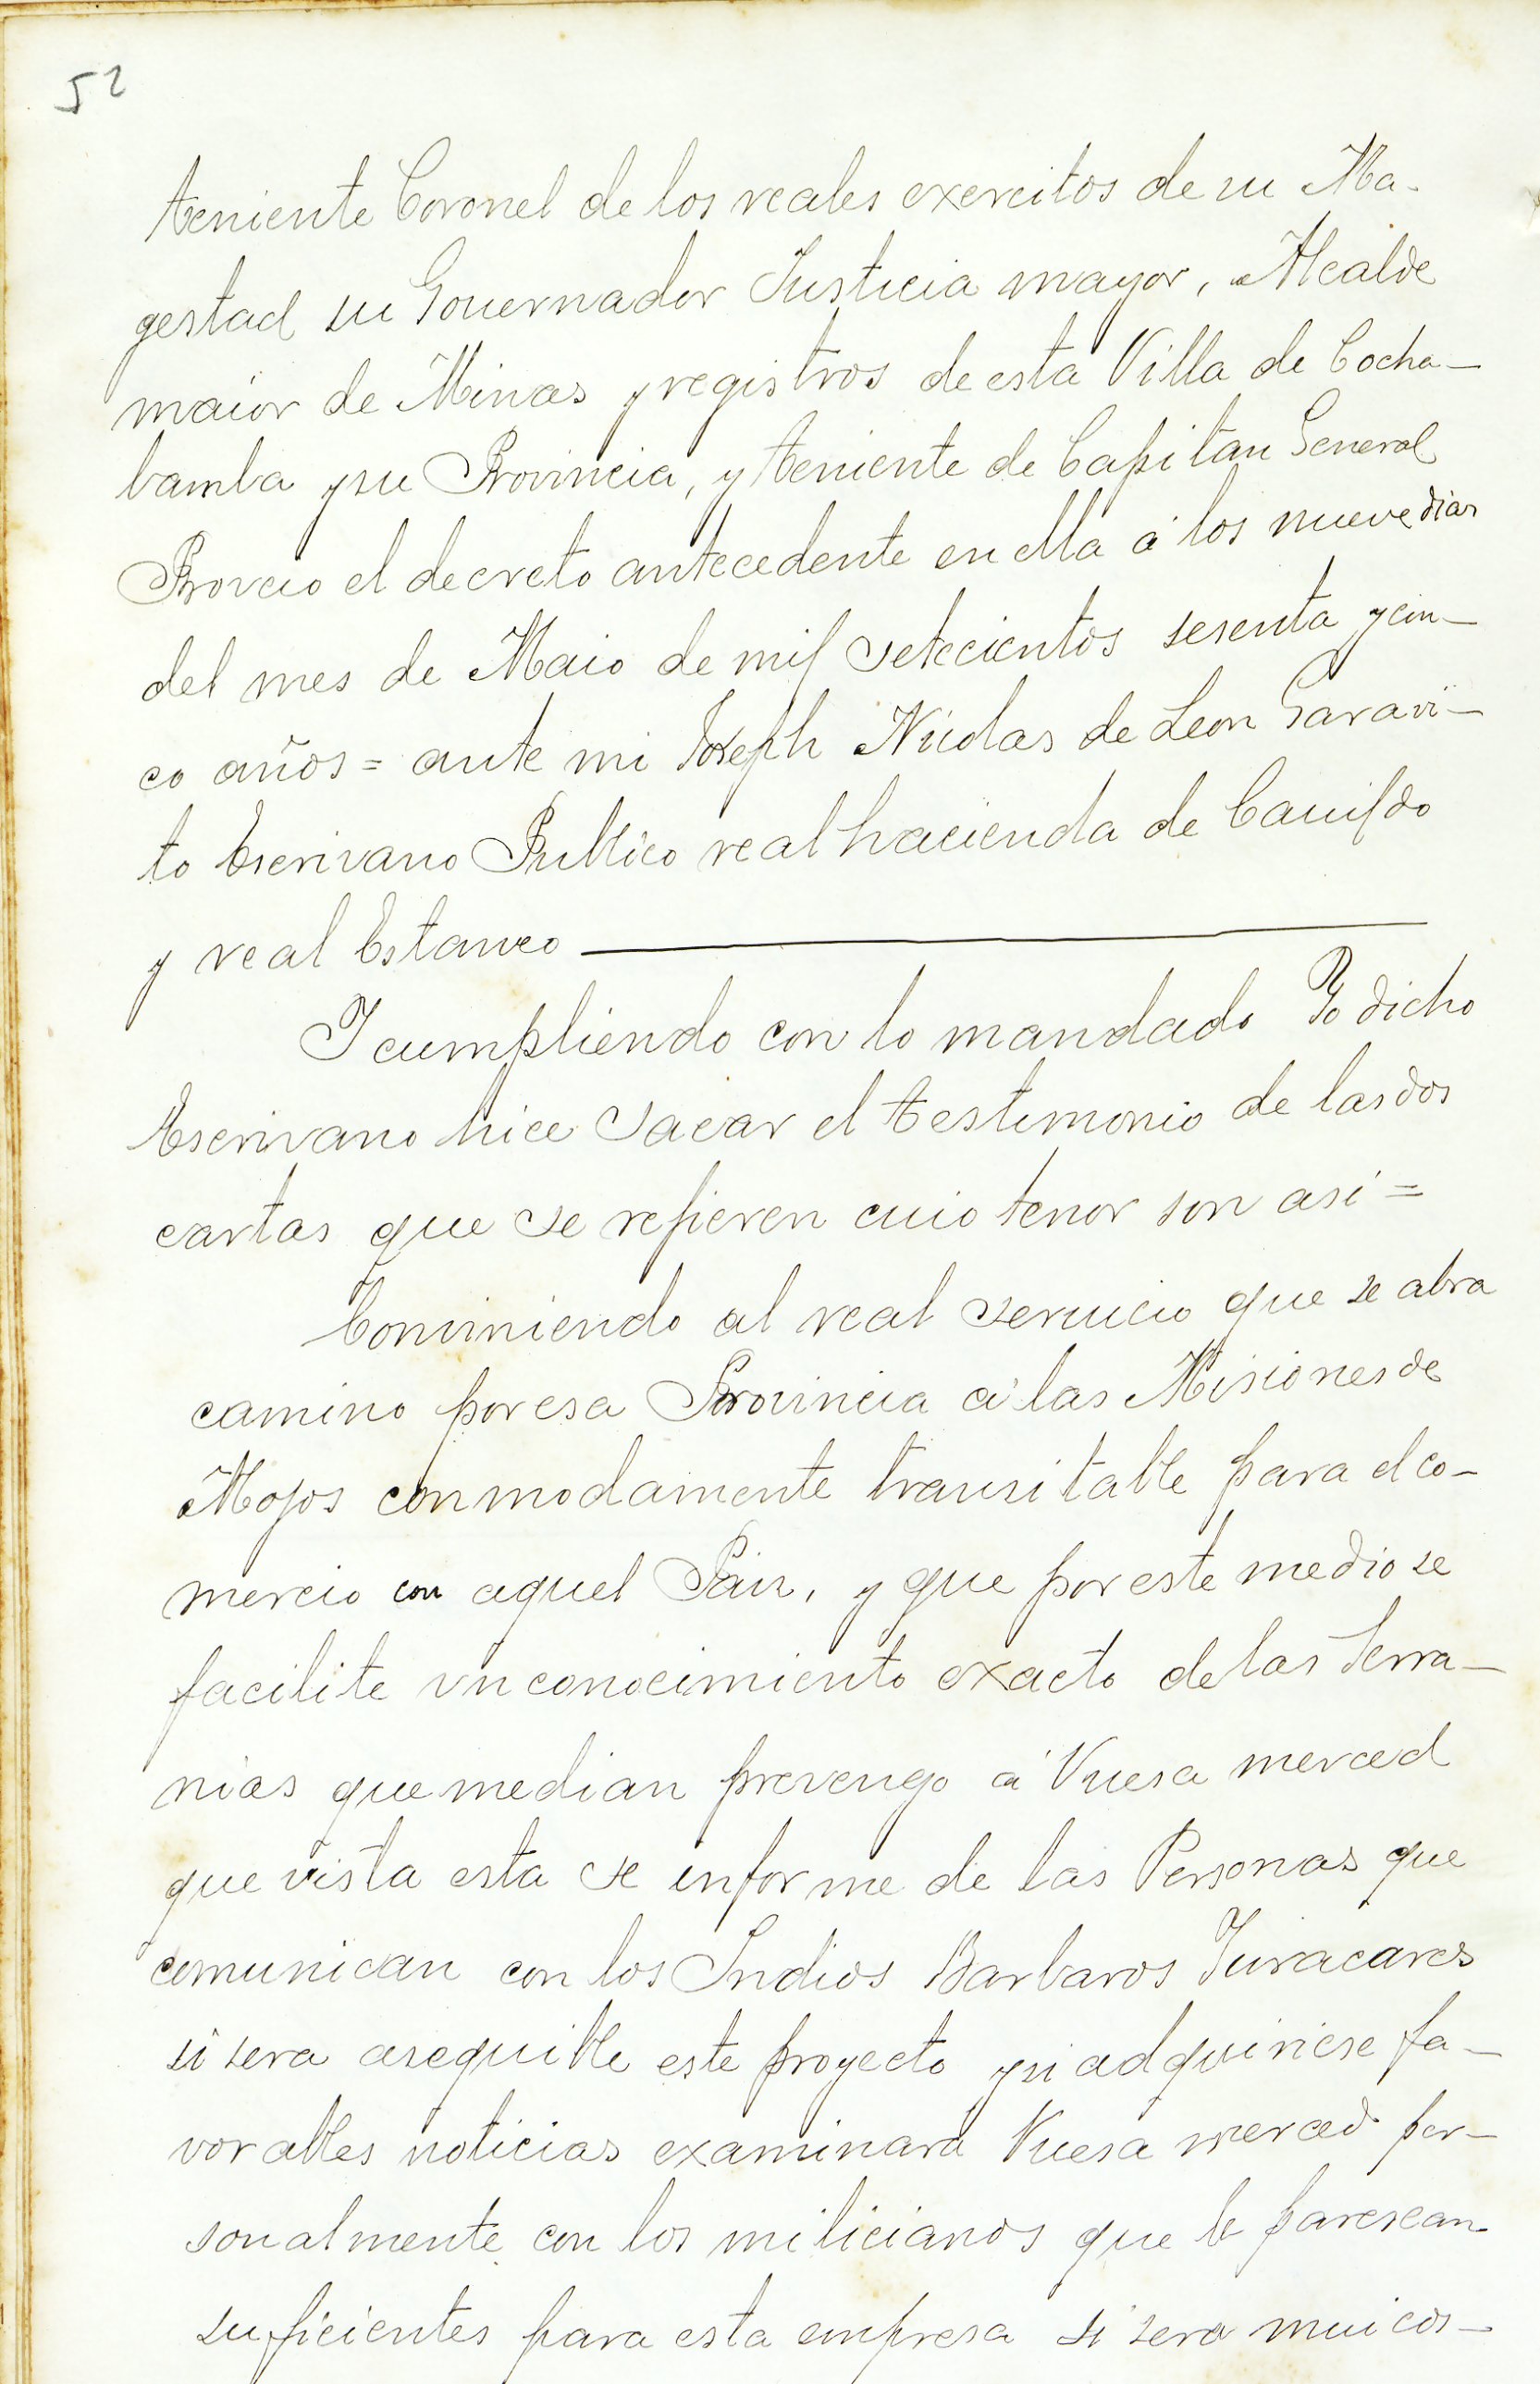 52
teniente Coronel de los reales exercitos de su Ma-
gestad su Gouernador Justicia mayor, Alcalde
maior de Minas y registros de esta Villa de Cocha-
bamba y su Provincia, y teniente de Capitan General
Proveio el decreto antecedente en ella á los nueve dias
del mes de Maio de mil setecientos sesenta y cin-
co años = ante mi Joseph Nicolas de Leon Garavi-
to Escrivano Publico real hacienda de Cauildo
y real Estanco
I cumpliendo con lo mandado Yo dicho
Escrivano hice sacar el testimonio de las dos
cartas que se refieren cuio tenor son asi =
Conviniendo al real seruicio que se abra
camino por esa Provincia á las Misiones de
Mojos conmodamente transitable para el co-
mercio con aquel Pais, y que por este medio se
facilite vn conocimiento exacto de las Serra-
nias que median prevengo á Vuesa merced
que vista esta se informe de las Personas que
comunican con los Indios Barbaros Yuracares
si sera asequible este proyecto y si adquiriese fa-
vorables noticias examinará Vuesa merced per-
sonalmente con los milicianos que le parescan
suficientes para esta empresa si sera mui cos-